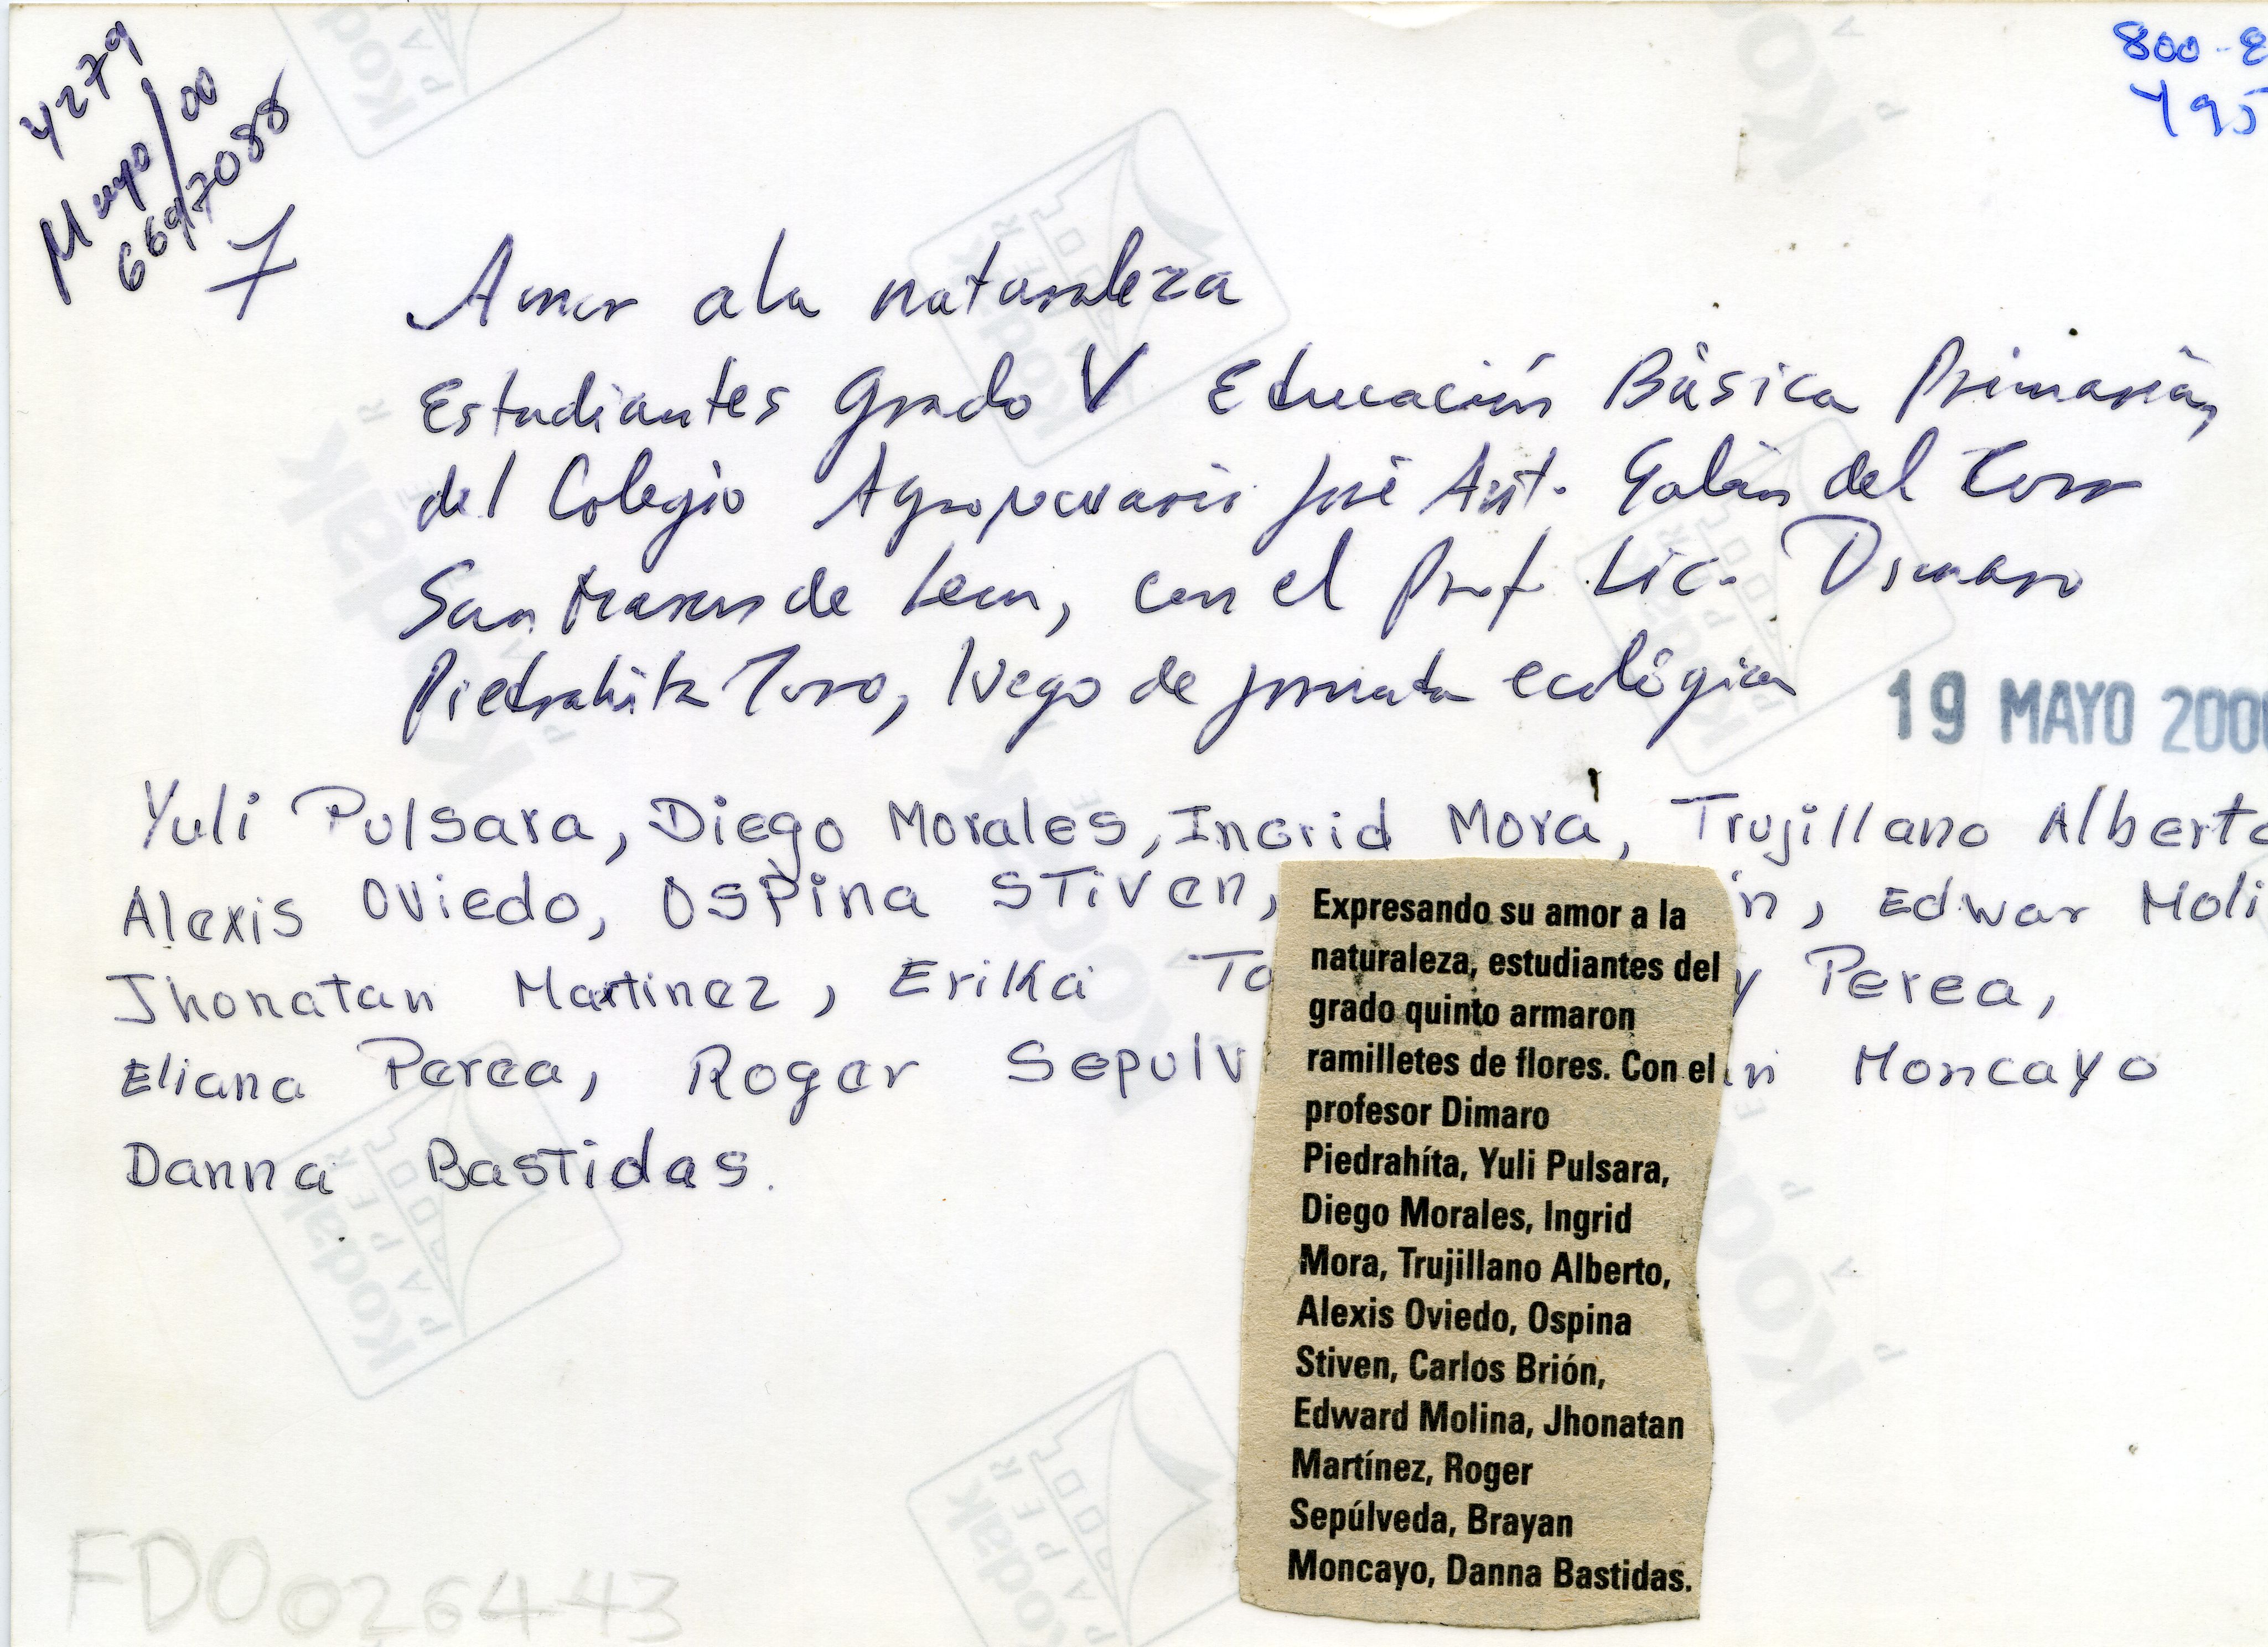 4279
Mayo/00
6697088
7
800-8
495
Amor a la naturaleza
Estudiantes Grado V Educación Básica Primaria,
del Colegio Agropecuario José Ant. Galán del Corr
San Marcos de León, con el Prof. Lic. Dimaro
Piedrahita Toro, luego de jornada ecológica
19 MAYO 200
Yuli Pulsara, Diego Morales, Ingrid Mora, Trujillano Alberto
Alexis Oviedo, Ospina STiven, n, Edwar Moli
Jhonatan Martinez, Erika To y Perea,
Eliana Perea, Roger Sepulv n Moncayo
Danna Bastidas.
Expresando su amor a la
naturaleza, estudiantes del
grado quinto armaron
ramilletes de flores. Con el
profesor Dimaro
Piedrahíta, Yuli Pulsara,
Diego Morales, Ingrid
Mora, Trujillano Alberto,
Alexis Oviedo, Ospina
Stiven, Carlos Brión,
Edward Molina, Jhonatan
Martínez, Roger
Sepúlveda, Brayan
Moncayo, Danna Bastidas.
FD0026443
Kodak
PAPER
PAPEL